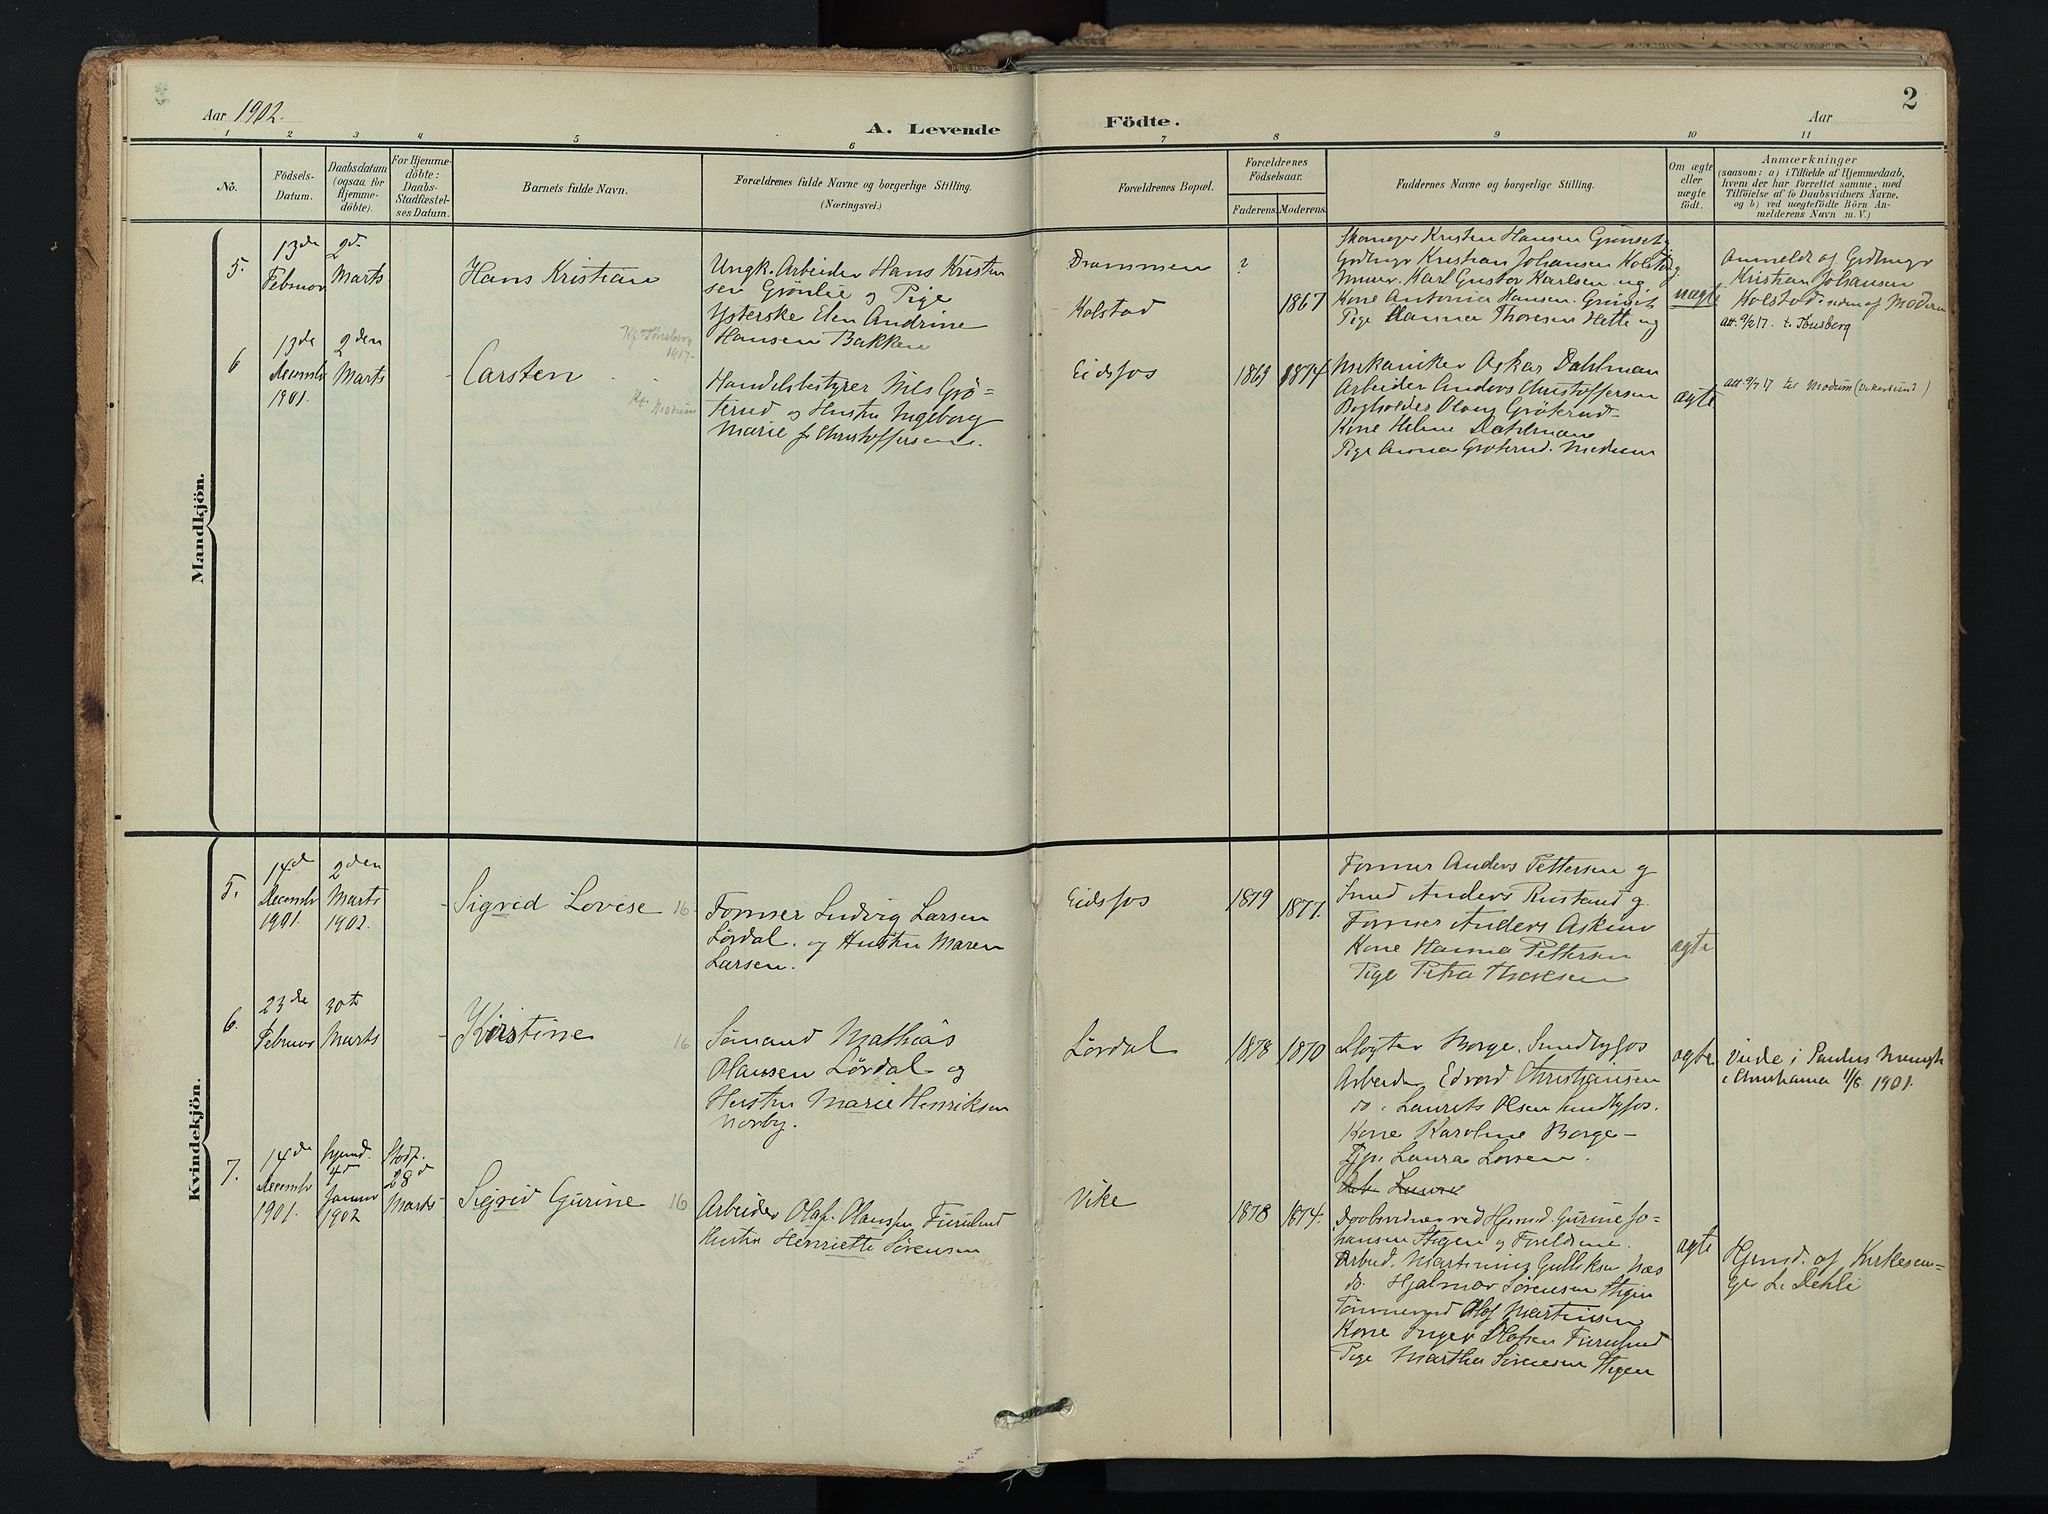 2
Aar 1902.
A. Levende Födte.
Aar
1 2 3 4 5 6 7 8 9 10 11
No.
Födsels-
Datum.
Daabsdatum
(ogsaa for
Hjemme-
döbte).
For Hjemme-
döbte:
Daabs-
Stadfæstel-
ses Datum.
Barnets fulde Navn.
Forældrenes fulde Navne og borgerlige Stilling.
(Næringsvei.)
Forældrenes Bopæl.
Forældrenes
Födselsaar.
Faderens. Moderens.
Faddernes Navne og borgerlige Stilling.
Om ægte
eller
uægte
födt.
Anmærkninger
(saasom: a) i Tilfælde af Hjemmedaab,
hvem der har forrettet samme, med
Tilföielse af to Daabsvidners Navne,
og b) ved uægtefödte Börn An-
melderens Navn m. V.)
Mandkjön.
5.
13de
Februar
2d.
Marts
Hans Kristian
Ungk. Arbeider Hans Kristen
sen Grönlie og Pige
Ysterske Elen Andrine
Hansen Bakken
Drammen
Kolstad
?
1867
Skomager Kristen Hansen Grinset
Kristian Johansen Kolstad
Murer Karl Gustav Karlsen ug.
Kone Antonia Hansen Grinset
Pige Hanna Thoresen Hette ug
uægte
Anmeldt af
Kristian Johansen
Kolstad
Att. 9/2 17. t. Tönsberg
Tönsberg
1917.
6
13de
Decembr
1901.
2den
Marts
Carsten
Modum
Handelsbestyrer Nils Grö-
terud og Hustru Ingeborg
Marie f. Christoffersen.
Eidsfos
1869
1874
Mekaniker Oskar Dahlman
Arbeider Anders Christoffersen
Bogholder Olaus Gröterud
Kone Helene Dahlman
Pige Anna Gröterud. Modum
ægte
Att 9/7 17 til Modum (Vikersund)
Kvindekjön.
5.
14d
Decembr
1901.
2den
Marts
1902.
Sigrid Lovise 16
Former Ludvig Larsen
Lørdal. og Hustru Maren
Larsen.
Eidsfos
1879
1877.
Former Anders Pettersen g
Smed Anders Rustand g.
Former Anders Asker
Kone Hanna Pettersen
Pige Petra Thoresen
ægte
6.
23de
Februar
30te
Marts
Kirstine 16
Sömand Mathias
Hansen Lørdal og
Hustru Marie Henriksen
Norby.
Lørdal
1878
1870
Slagter Borge. Sundbyfos
Arbeider Edvard Christiansen
do. Laurits Olsen Sundbyfos.
Kone Karoline Borge
Laura Larsen.
ægte
Viede i Paulus Menigh
i Christiania 11/8 1901.
7.
14d
Decembr
1901.
Hjemd.
4d
Januar
1902
Stadf.
28d
Marts
Sigrid Gurine 16
Arbeider Olaf Olausen Furulund
Hustru Henriette Sörensen
Vike
1878
1874.
Daabsvidner ved Hjemd. Gurine Jo-
hansen Stigen og Forældrene.
Arbeid. Martinius Gulliksen Næs
do. Hjalmar Sörensen Stigen
Tömmermd Olaf Martinsen
Kone Inger Olafsen Furulund
Pige Martha Sörensen Stigen
ægte
Hjemd. af Kirkesan-
ger L. Dehli